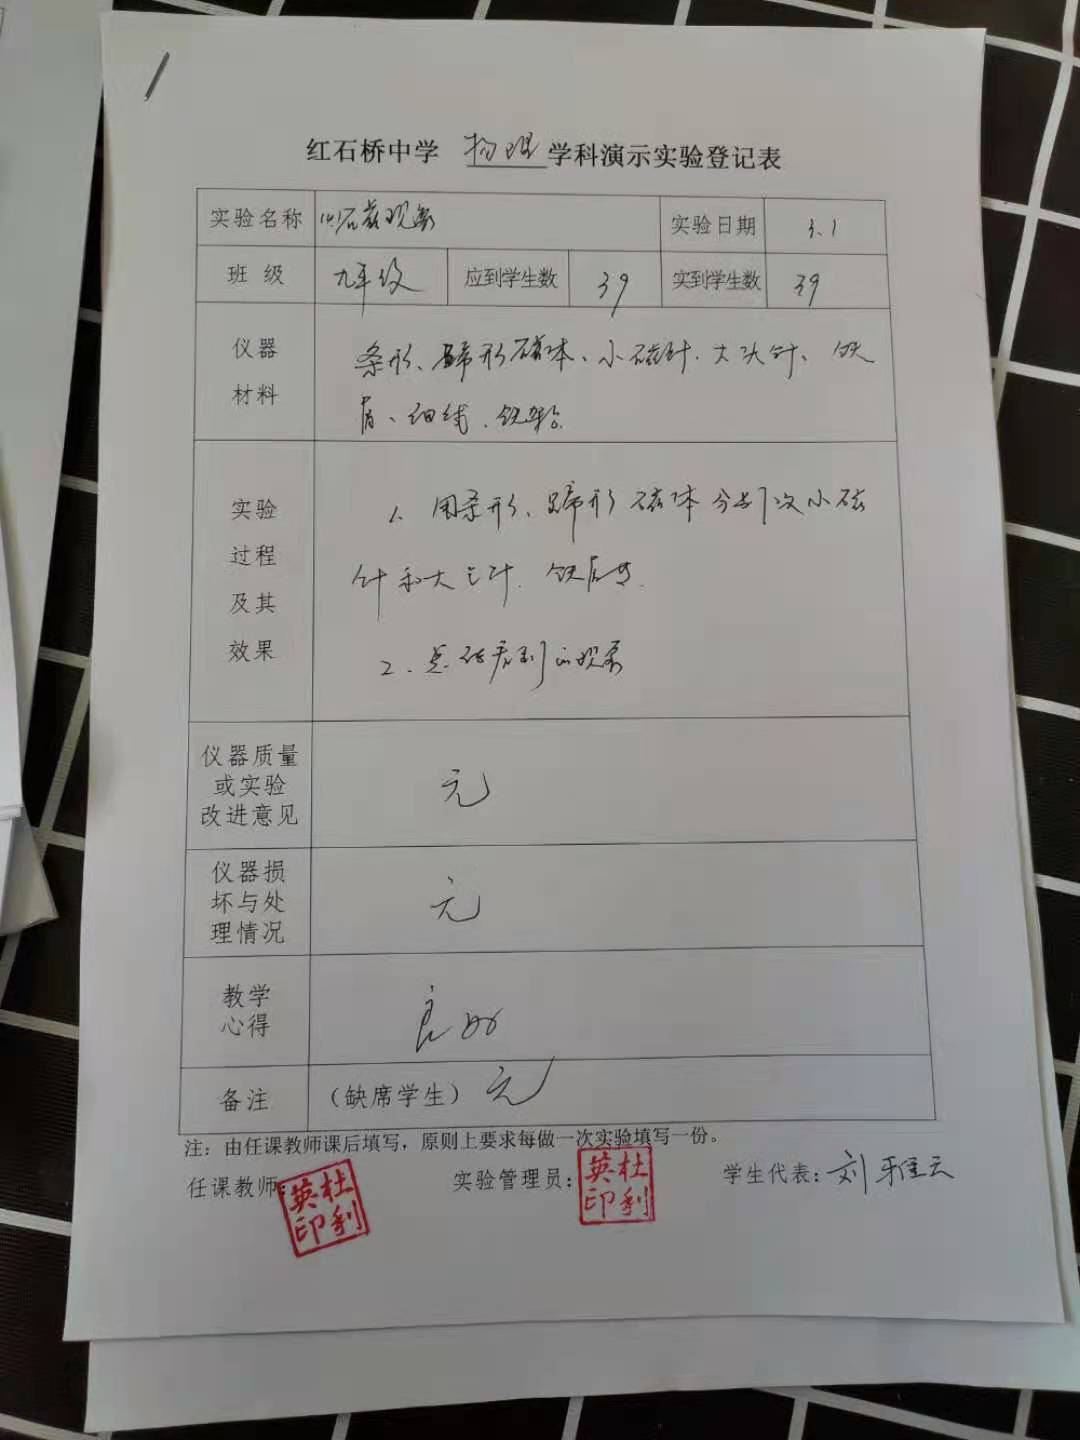 红石桥中学 物理 学科演示实验登记表
实验名称 磁现象 实验日期 3.1
班级 九年级 应到学生数 39 实到学生数 39
仪器
材料
条形、蹄形磁体、小磁针、大头针、铁
屑、细线、铁
实验
过程
及其
效果
1、用条形、蹄形磁体分别吸小磁
针和大头针、铁屑
2、总结看到的现象
仪器质量
或实验
改进意见
无
仪器损
坏与处
理情况
无
教学
心得
良好
备注 (缺席学生) 无
注：由任课教师课后填写，原则上要求每做一次实验填写一份。
任课教师: 杜利英印 实验管理员: 杜利英印 学生代表: 刘雅云